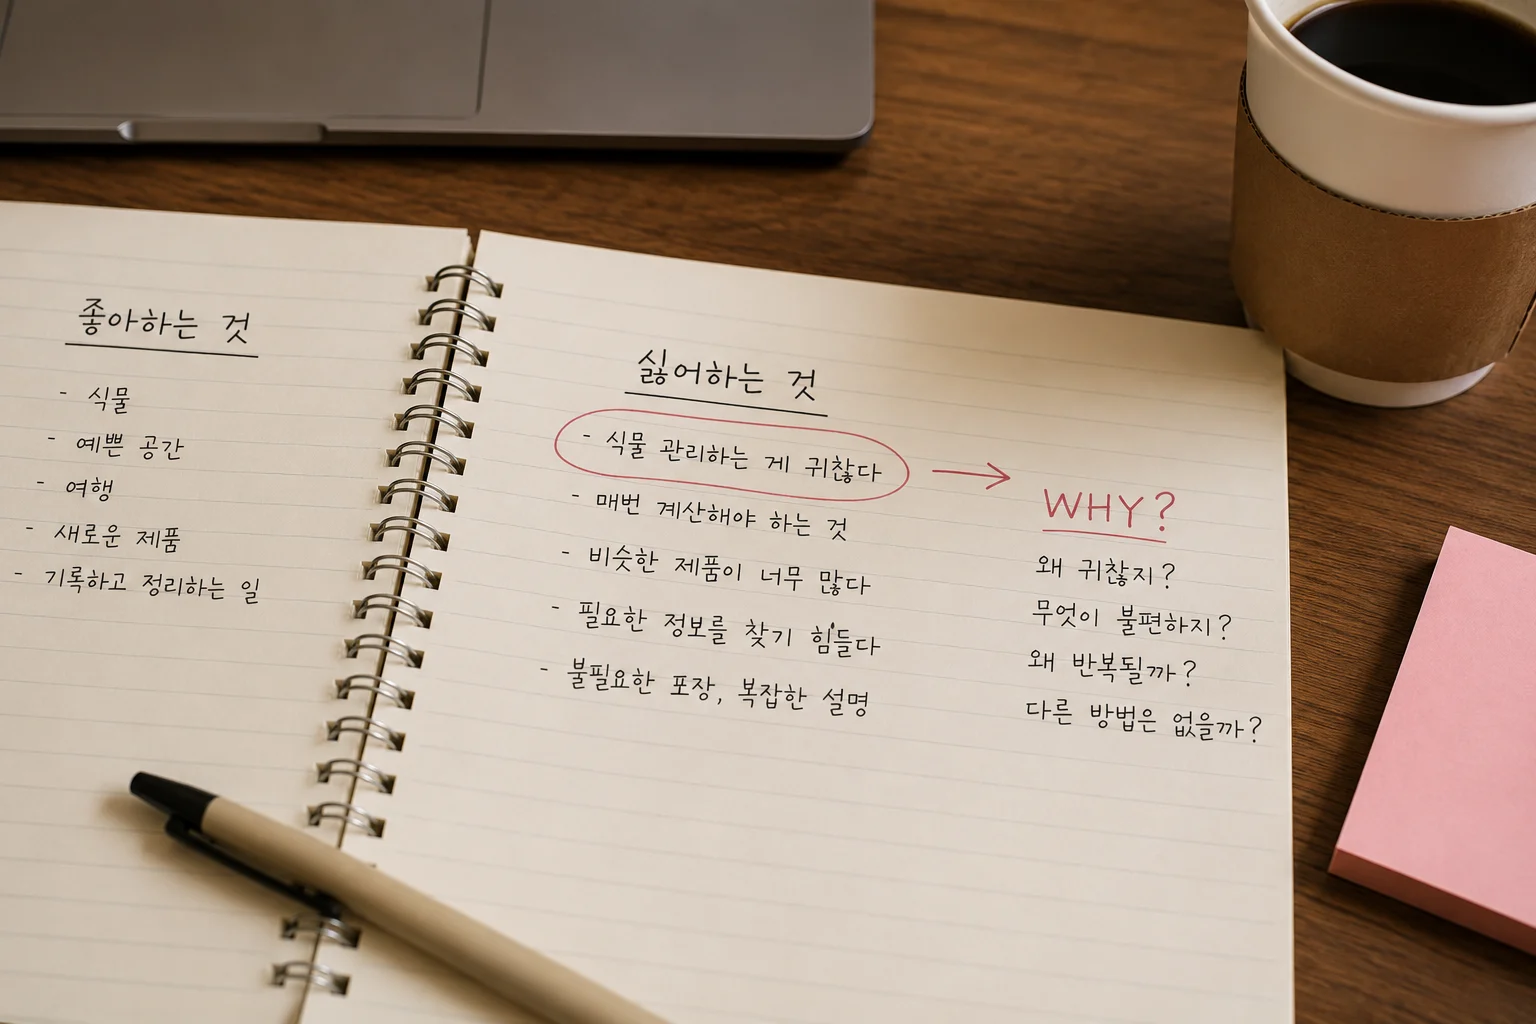 좋아하는 것
- 식물
- 예쁜 공간
- 여행
- 새로운 제품
- 기록하고 정리하는 일
싫어하는 것
- 식물 관리하는 게 귀찮다
- 매번 계산해야 하는 것
- 비슷한 제품이 너무 많다
- 필요한 정보를 찾기 힘들다
- 불필요한 포장, 복잡한 설명
WHY?
왜 귀찮지?
무엇이 불편하지?
왜 반복될까?
다른 방법은 없을까?